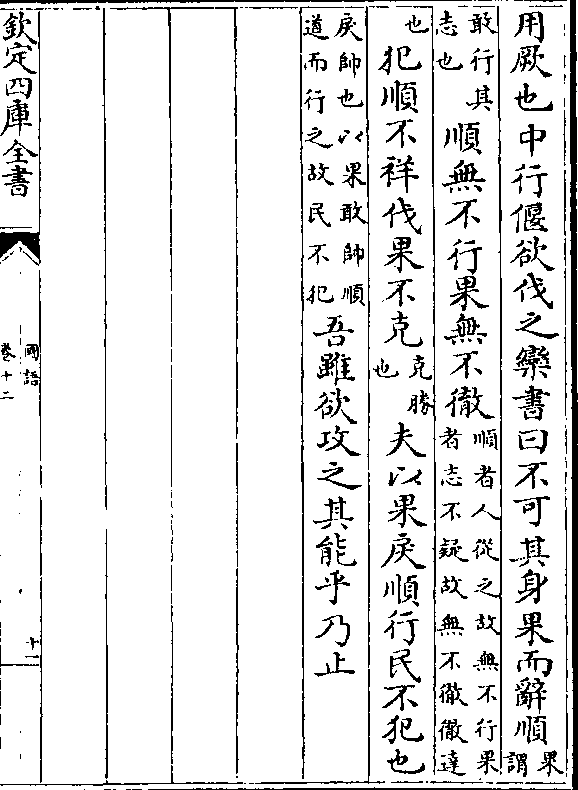 用厥也中行偃欲伐之欒書曰不可其身果而辭順果謂
敢行其志也順無不行果無不徹順者人從之故無不行果者志不疑故無不徹徹達
也犯順不祥伐果不克克勝也夫以果戾順行民不犯也
戾帥也以果敢帥順道而行之故民不犯吾雖欲攻之其能乎乃止
欽定四庫全書
國語
卷十二
十一